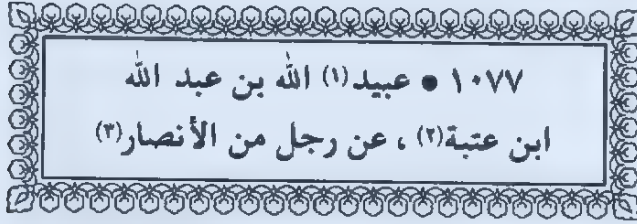 ١٠٧٧ • عبيد(١) الله بن عبد الله
ابن عتبة(٢) ، عن رجل من الأنصار(٣)